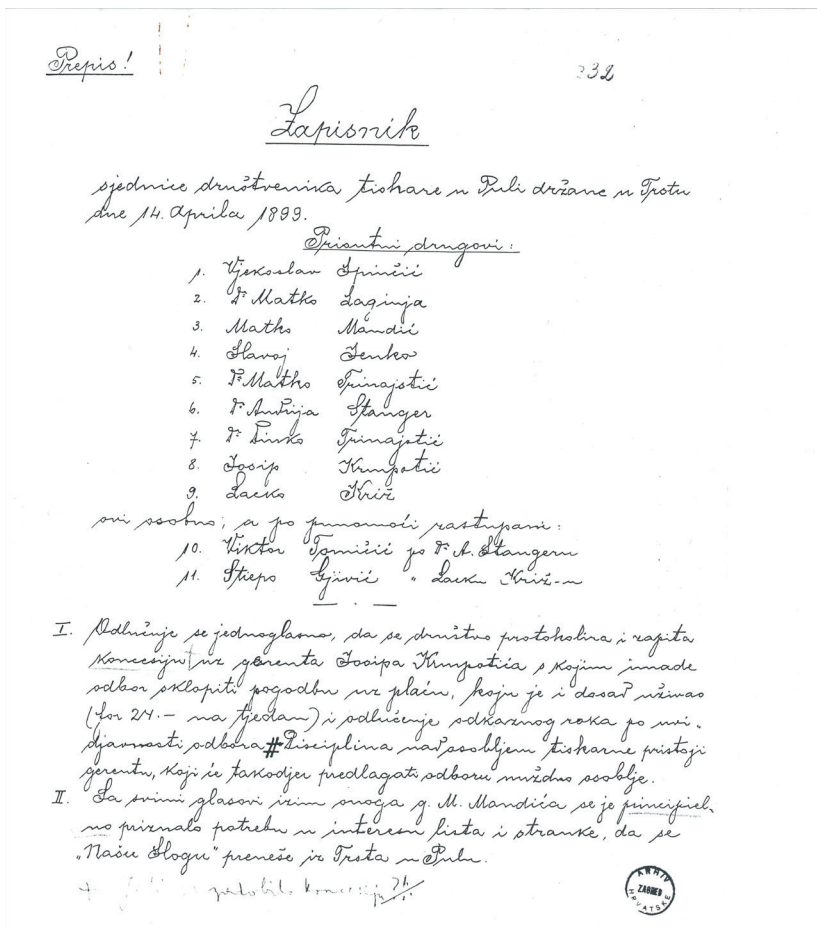 Prepis!
232
Zapisnik
sjednice društvenika tiskare u Puli držane u Trstu
dne 14. Aprila 1899.
Prisutni drugovi:
1. Vjekoslav Spinčić
2. Dr Matko Laginja
3. Matko Mandić
4. Slavoj Jenko
5. Dr Matko Trinajstić
6. Dr Andrija Stanger
7. Dr Dinko Trinajstić
8. Josip Krmpotić
9. Lacko Križ
ovi osobno; a po punomoći zastupani:
10. Viktor Tomičić po Dr A. Stangeru
11. Stiepo Gjivić " Lacku Križ-u
I. Odlučuje se jednoglasno, da se društvo protokolira i zapita
koncesiju uz gerenta Josipa Krmpotića s kojim imade
odbor sklopiti pogodbu uz plaću, koju je i dosad uživao
(for 24.- na tjedan) i odlučenje odkaznog roka po uvi-
djavnosti odbora # Disciplina nad osobljem tiskarne pristoji
gerentu, koji će takodjer predlagati odboru nuždno osoblje.
II. Sa svimi glasovi izim onoga g. M. Mandića se je principiel-
no priznalo potrebu u interesu lista i stranke, da se
„Našu Slogu" prenese iz Trsta u Pulu.
koncesiju
ARHIV HRVATSKE ZAGREB